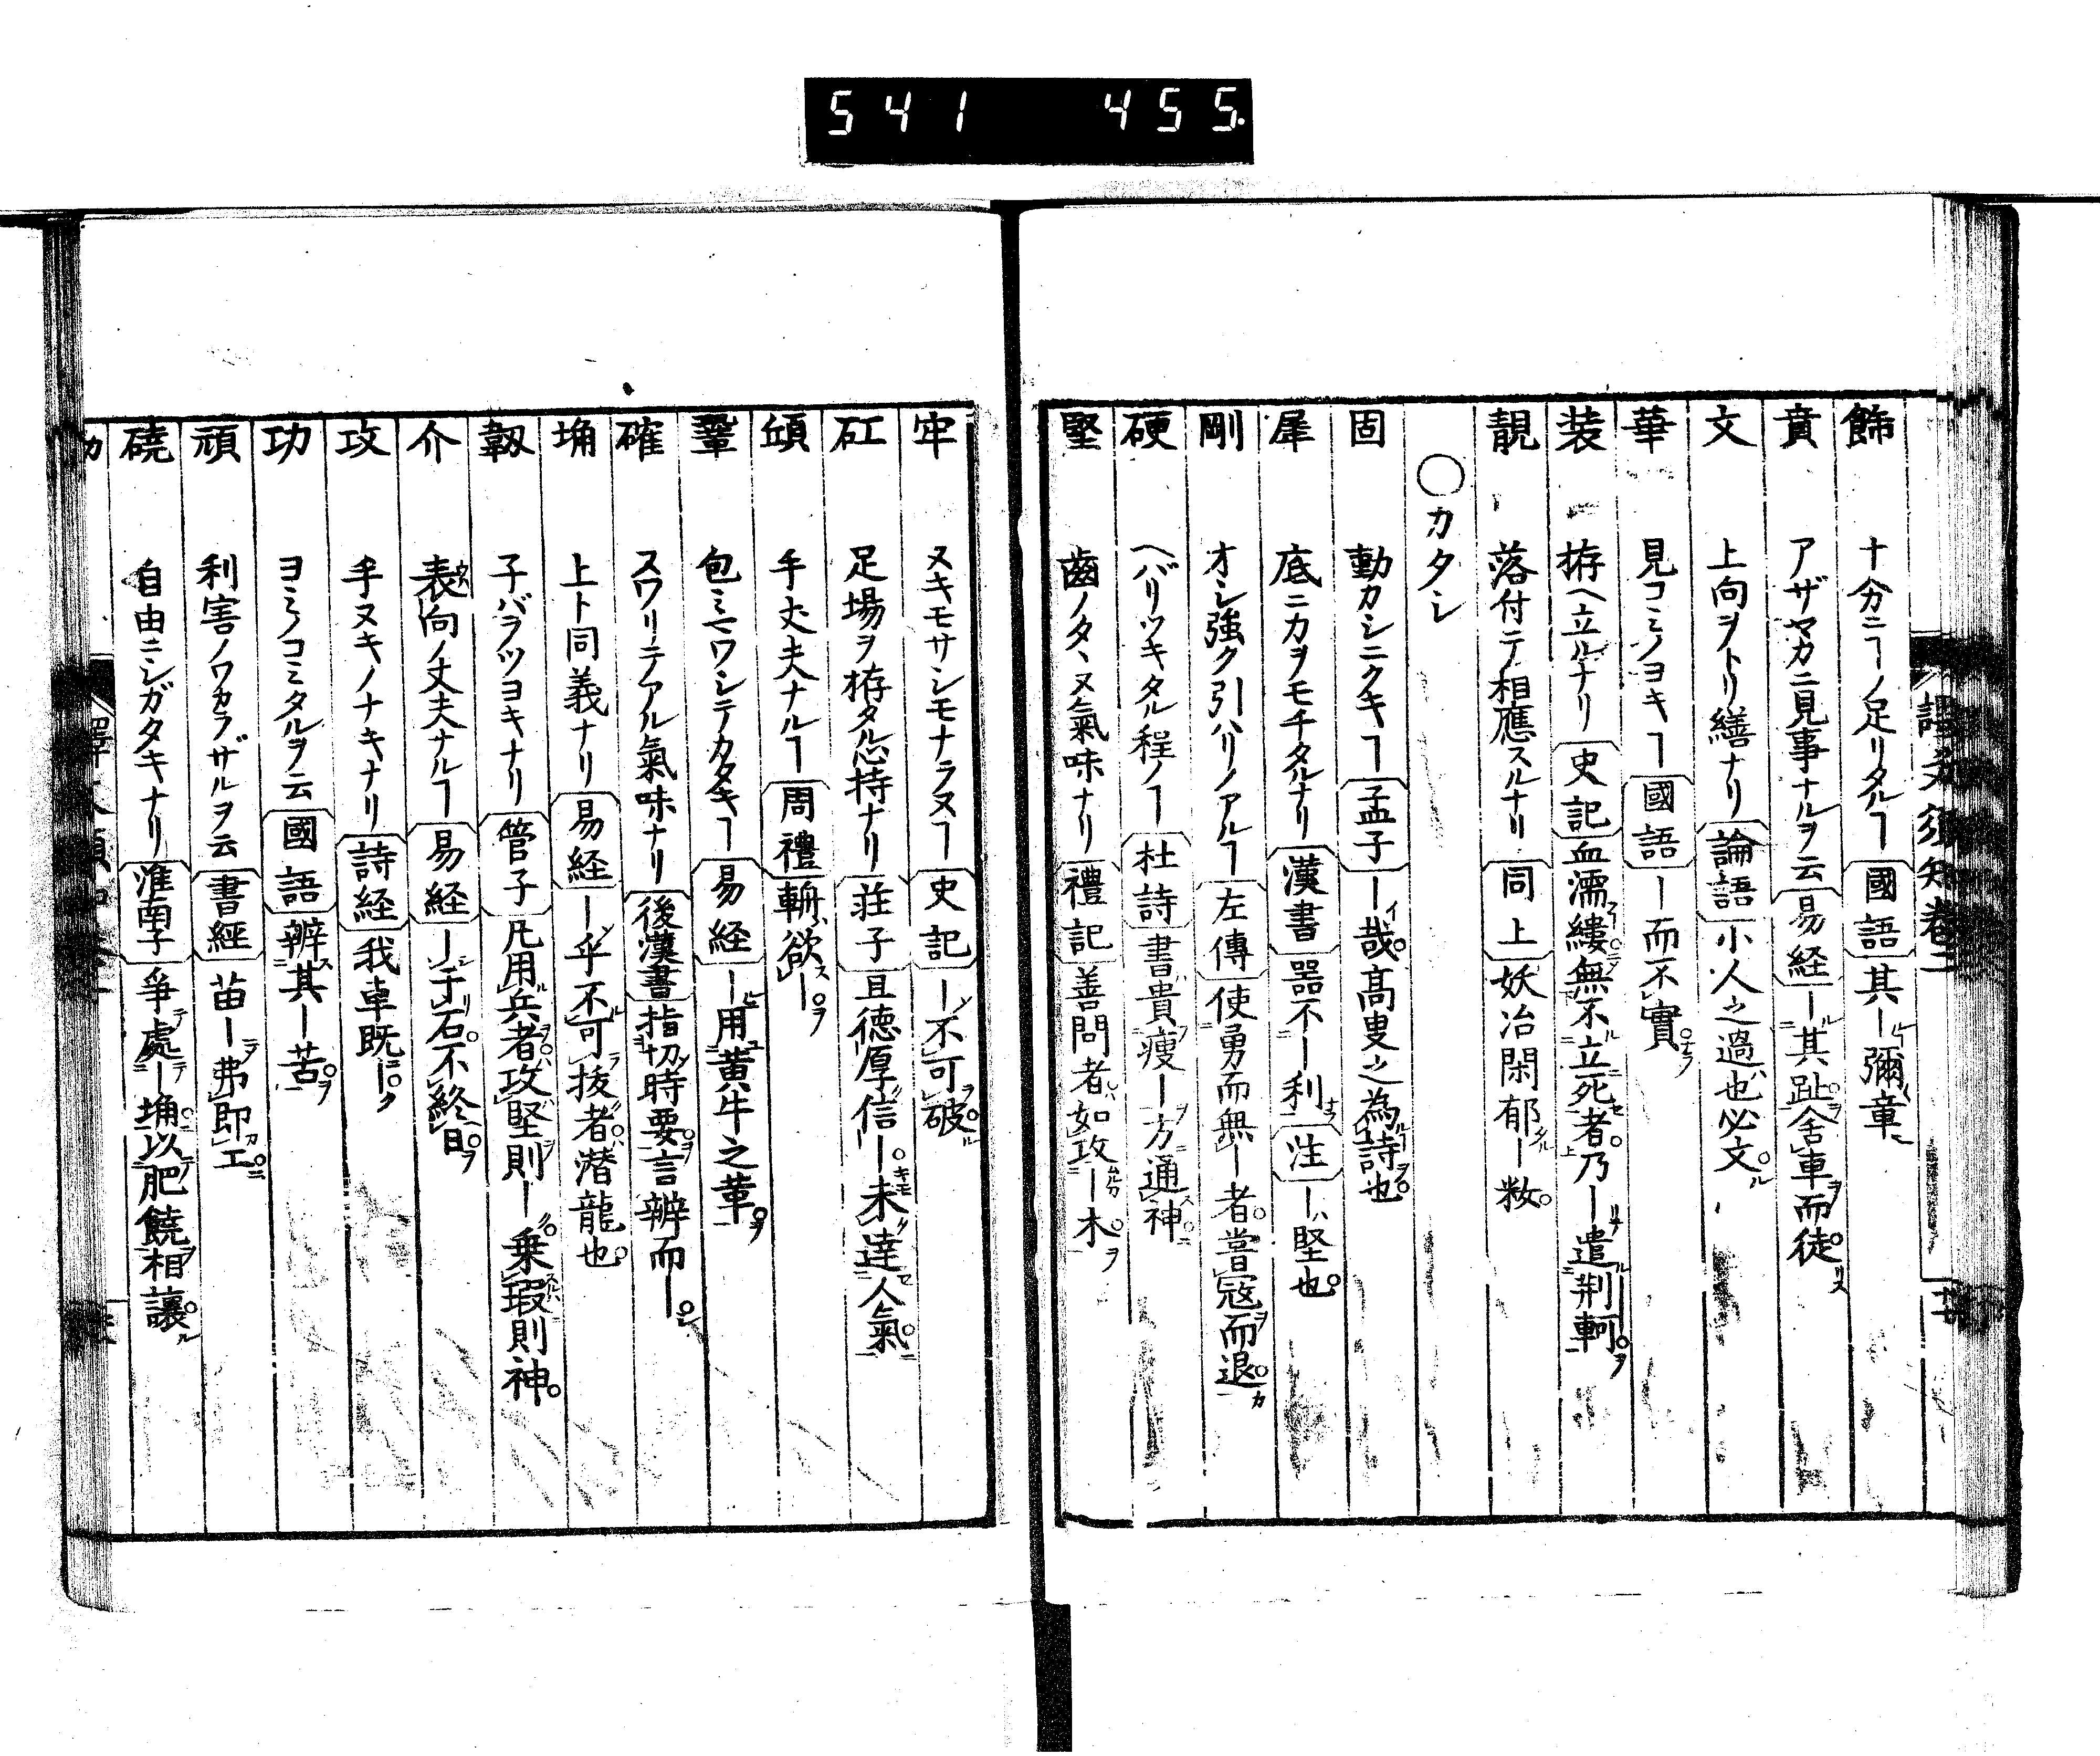 541 455.
譯文須知巻二
飾 十分ニヿノ足リタルヿ 國語 其ー彌章
賁 アザヤカニ見事ナルヲ云 易経 ー其趾舎車而徒
文 上向ヲトリ繕ナリ 論語 小人之過也必文
華 見コミノヨキヿ 國語 ー而不實
装 拵ヘ立ルナリ 史記 血濡縷無不立死者乃ー遣荆軻
靚 落付テ相應スルナリ 同上 妖冶閑郁ー糚
○カタシ
固 動カシニクキヿ 孟子 ー哉高叟之為詩也
犀 底ニカヲモチタルナリ 漢書 器不ー利 注 ー堅也
剛 オシ強ク引ハリノアルヿ 左傳 使勇而無ー者嘗冦而退
硬 ヘバリツキタル程ノヿ 杜詩 書貴痩ー方通神
堅 齒ノタヽヌ氣味ナリ 禮記 善問者如攻ー木
牢 ヌキモサシモナラヌヿ 史記 ー不可破
矼 足場ヲ拵タル心持ナリ 莊子 且徳厚信ー未達人氣
頎 手丈夫ナルヿ 周禮 輈欲ー
鞏 包ミマワシテカタキヿ 易経 ー用黄牛之革
確 スワリテアル氣味ナリ 後漢書 指切時要言辨而ー
埆 上ト同義ナリ 易経 ー乎不可抜者潜龍也
韌 子バラツヨキナリ 管子 凡用兵者攻堅則ー乗瑕則神
介 表向ノ丈夫ナルヿ 易経 ー于石不終日
攻 手ヌキノナキナリ 詩経 我車既ー
功 ヨミノコミタルヲ云 國語 辨其ー苦
頑 利害ノワカラザルヲ云 書經 苗ー弗即工
磽 自由ニシガタキナリ 淮南子 爭處ー埆以肥饒相讓